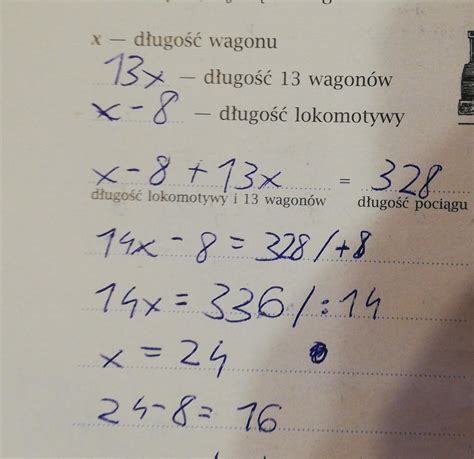 x — długość wagonu
13x — długość 13 wagonów
x - 8 — długość lokomotywy
x - 8 + 13x = 328
długość lokomotywy i 13 wagonów długość pociągu
14x - 8 = 328 /+8
14x = 336 / : 14
x = 24
24 - 8 = 16